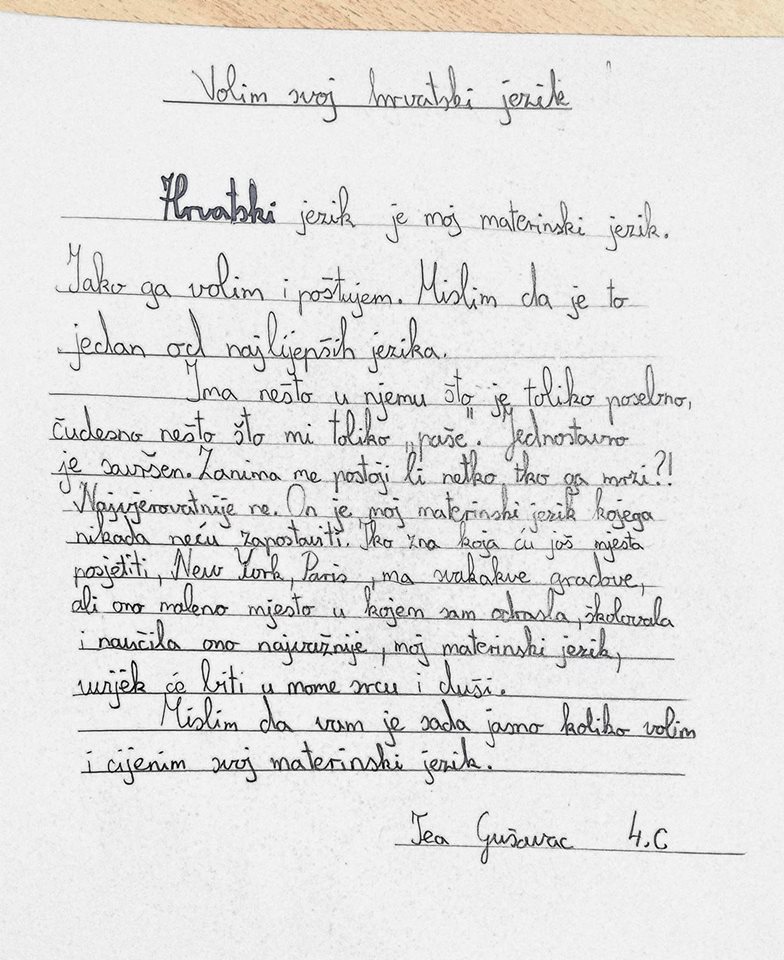 Volim svoj hrvatski jezik
Hrvatski jezik je moj materinski jezik.
Jako ga volim i poštujem. Mislim da je to
jedan od najlijepših jezika.
Ima nešto u njemu što je toliko posebno,
čudesno nešto što mi toliko „paše". Jednostavno
je savršen. Zanima me postoji li netko tko ga mrzi?!
Najvjerovatnije ne. On je moj materinski jezik kojega
nikada neću zapostaviti. Tko zna koja ću još mjesta
posjetiti, New York, Paris, ma svakakve gradove,
ali ono maleno mjesto u kojem sam odrasla, školovala
i naučila ono najvažnije, moj materinski jezik,
uvijek će biti u mome srcu i duši.
Mislim da vam je sada jasno koliko volim
i cijenim svoj materinski jezik.
Tea Gušavac 4.c